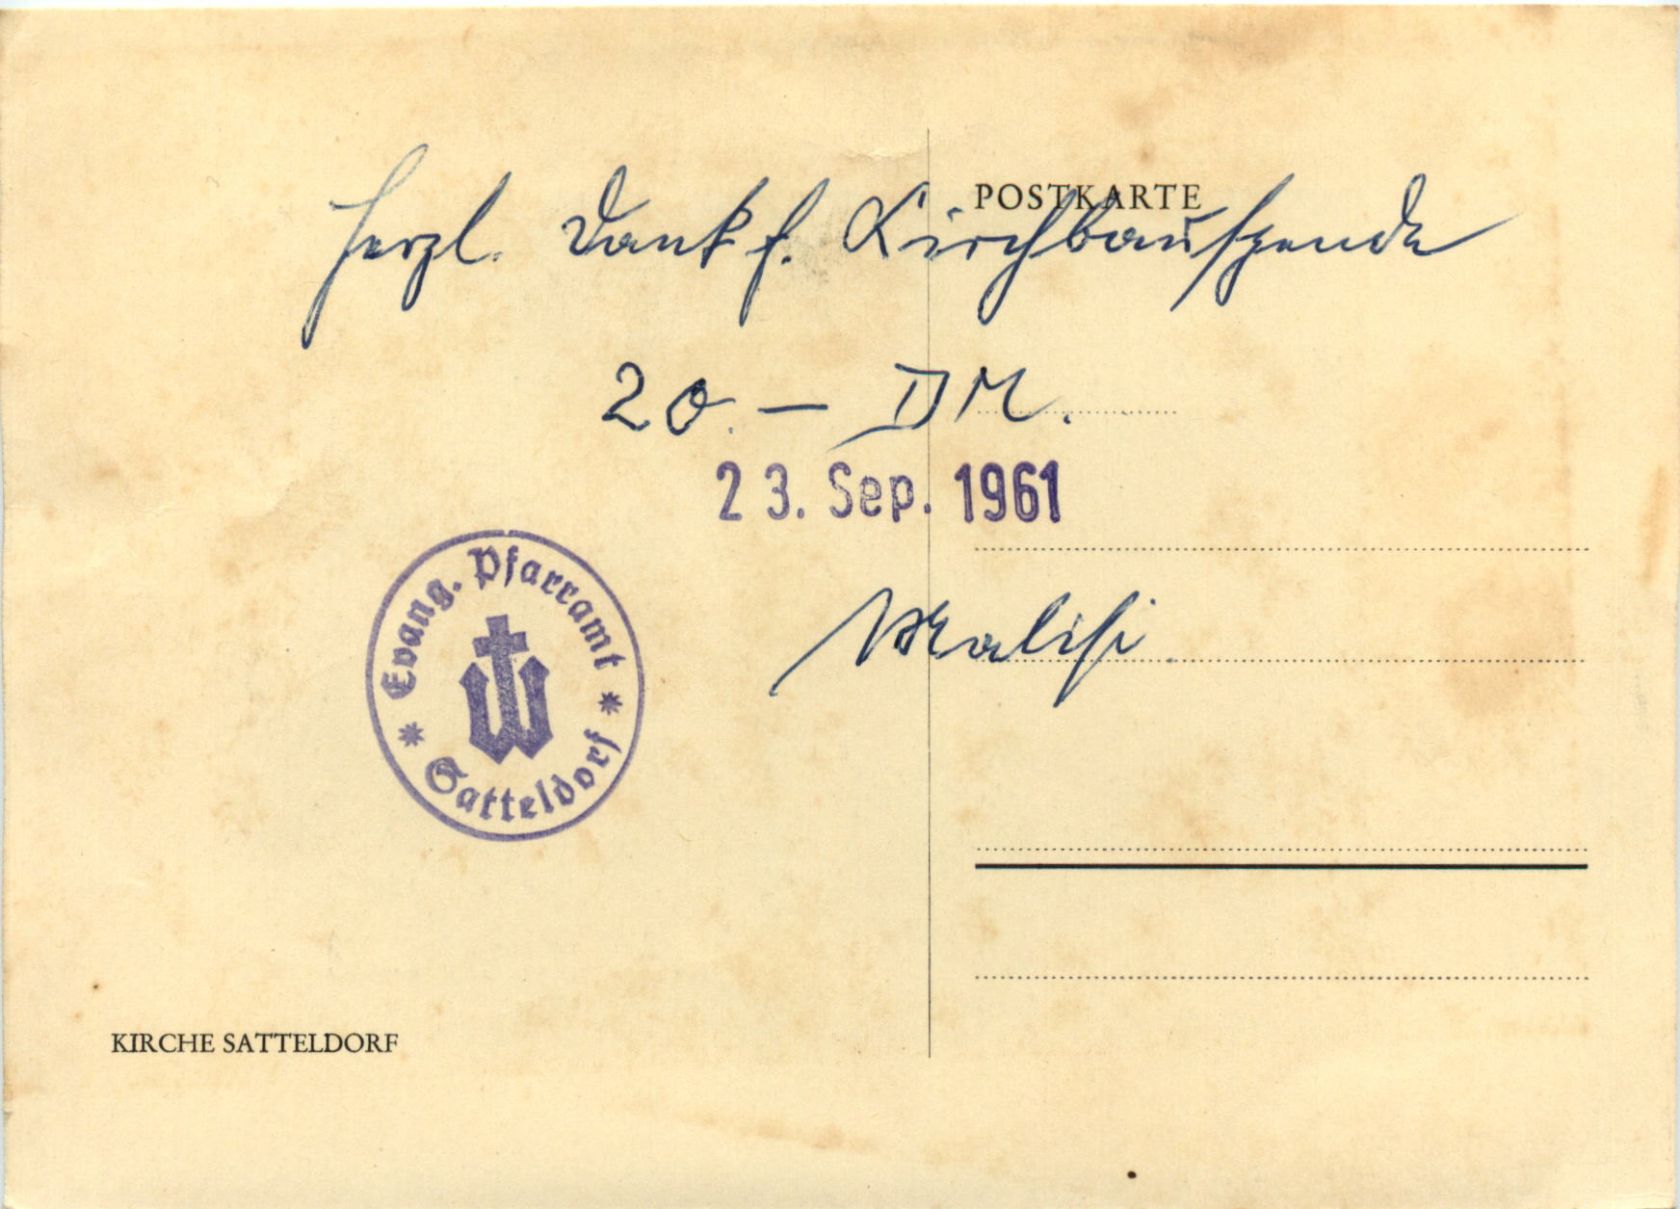 POSTKARTE
Herzl. Dank f. Kirchbauspende
20.– DM.
23. Sep. 1961
Evang. Pfarramt
Satteldorf
KIRCHE SATTELDORF